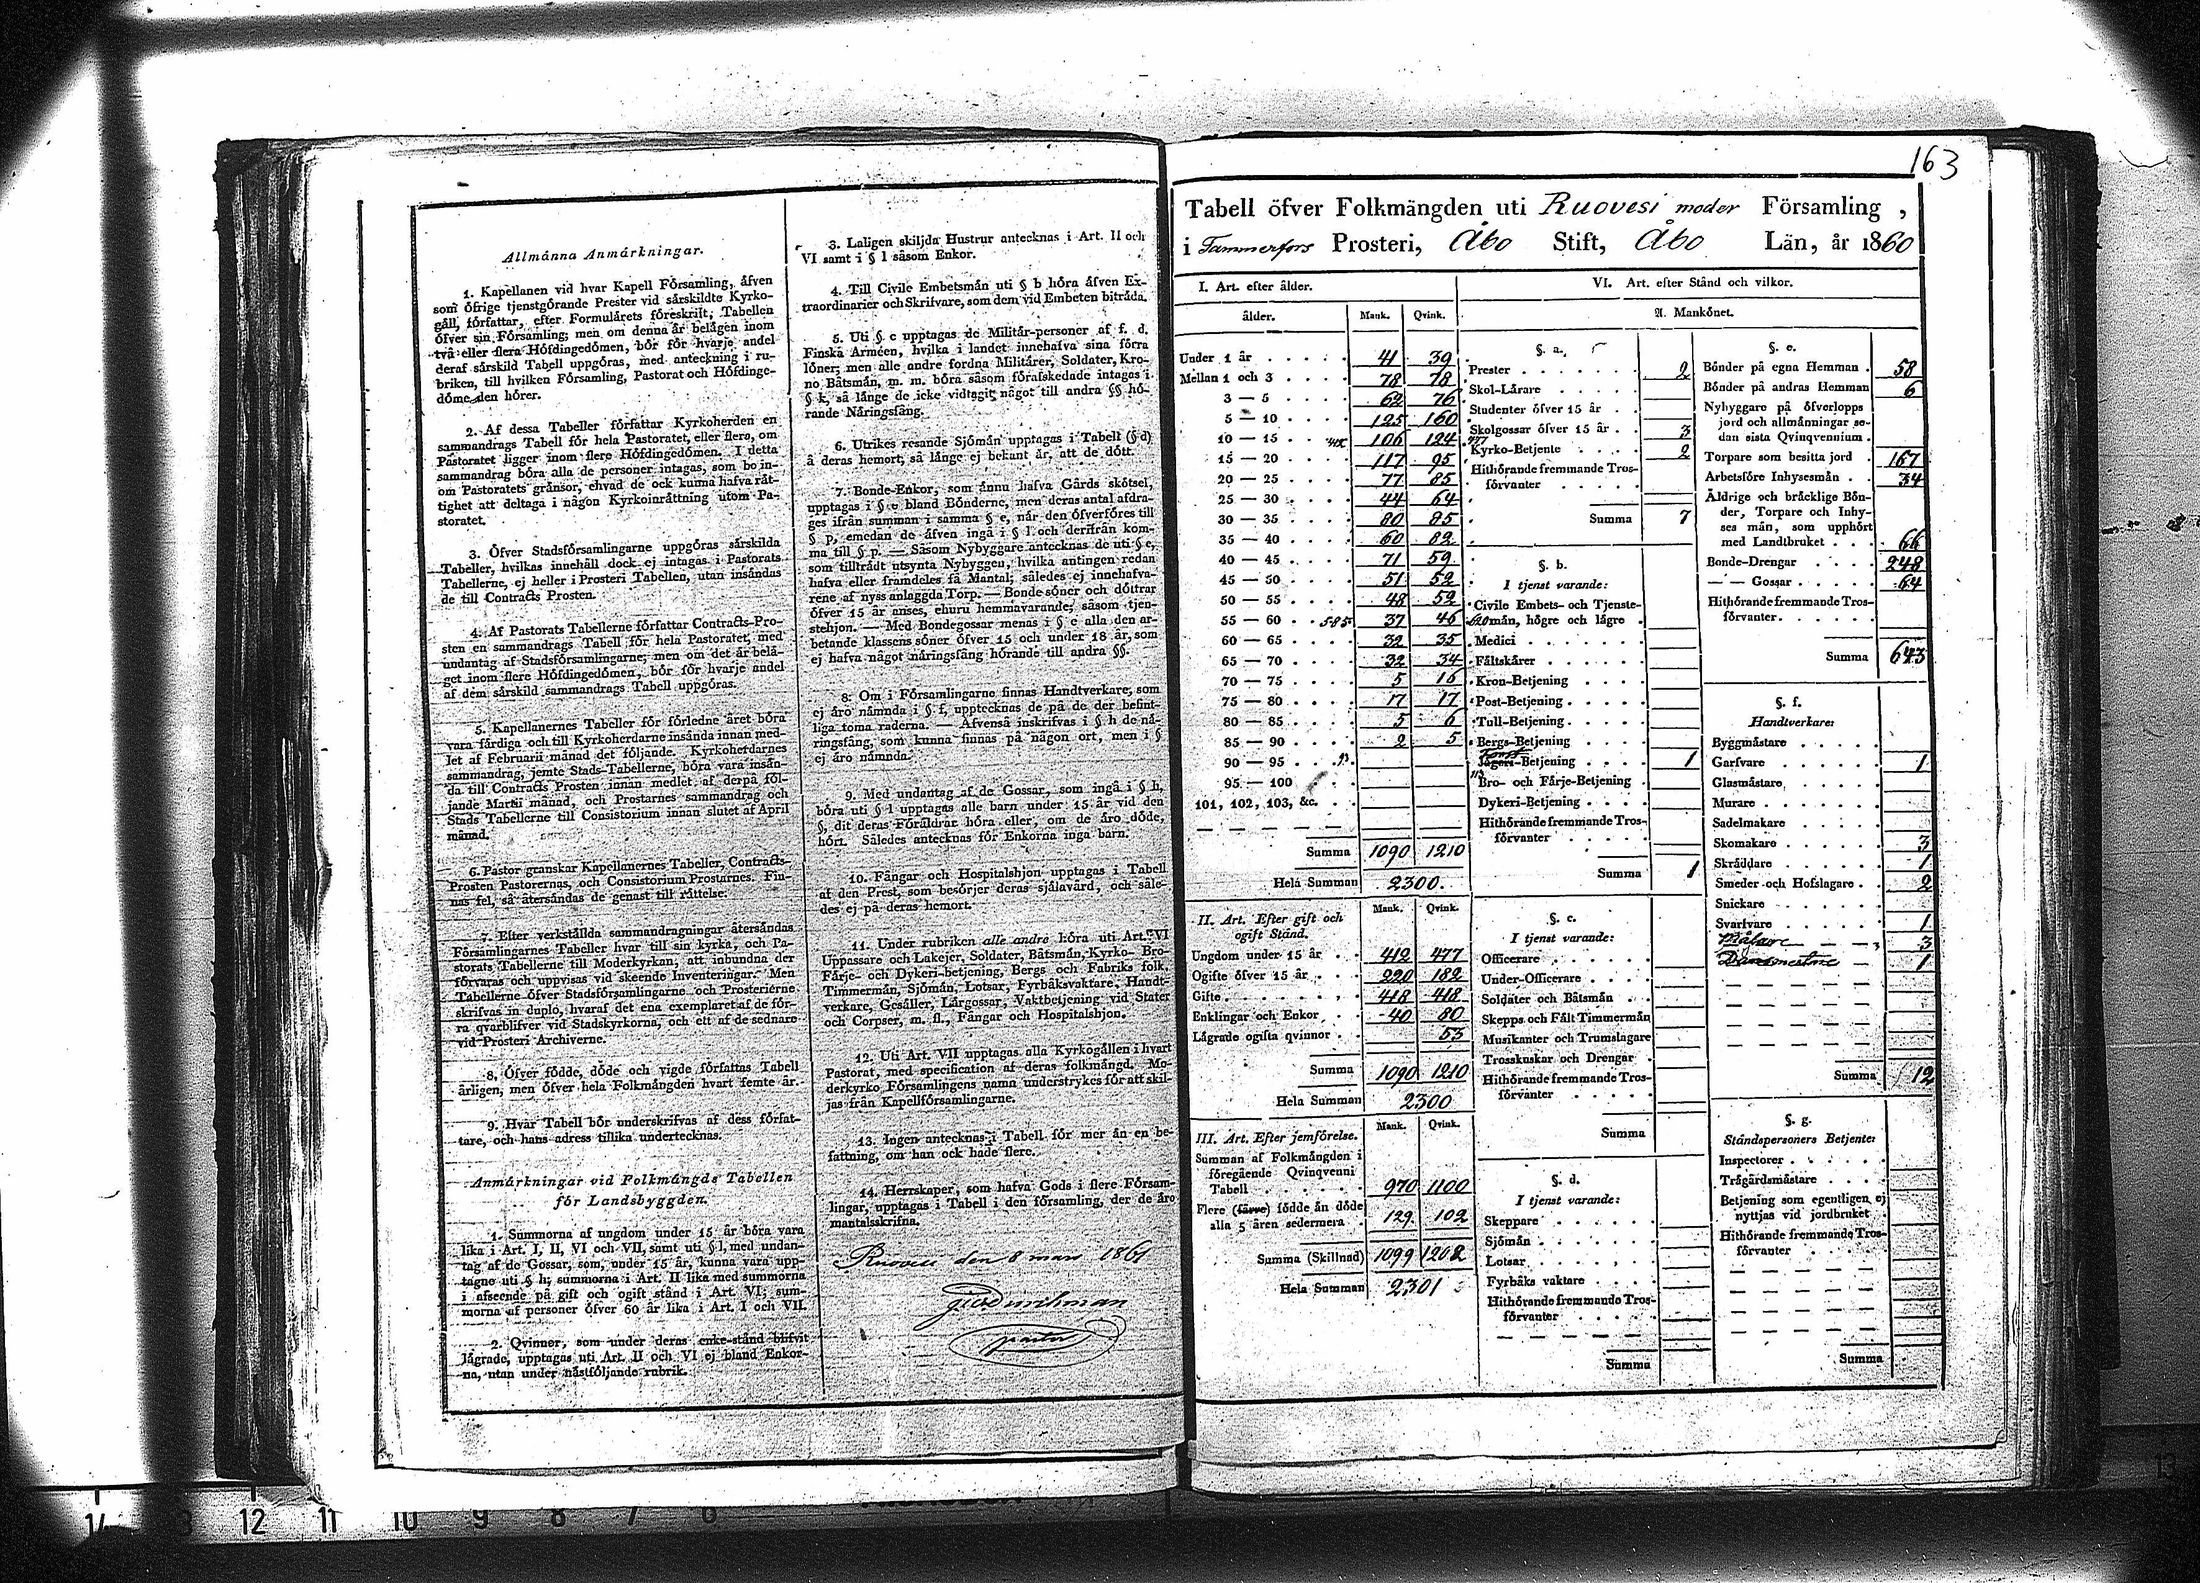 Allmänna Anmärkningar.
1. Kapellanen vid hvar Kapell Församling, äfven
som öfrige tjenstgörande Prester vid särskildte Kyrko-
gäll, författar, efter Formulärets föreskrift, Tabellen
öfver sin Församling; men om denna är belägen inom
två eller flera Höfdingedömen, bör för hvarje andel
deraf särskild Tabell uppgöras, med anteckning i ru-
briken, till hvilken Församling, Pastorat och Höfdinge-
döme den hörer.
2. Af dessa Tabeller författar Kyrkoherden en
sammandrags Tabell för hela Pastoratet, eller flera, om
Pastoratet ligger inom flere Höfdingedömen. I detta
sammandrag böra alla de personer intagas, som bo in-
om Pastoratets gränsor, ehvad de ock kunna hafva rät-
tighet att deltaga i någon Kyrkoinrättning utom Pa-
storatet.
3. Öfver Stadsförsamlingarne uppgöras särskilda
Tabeller, hvilkas innehåll dock ej intages i Pastorats
Tabellerne, ej heller i Prosteri Tabellen, utan insändas
de till Contracts Prosten.
4. Af Pastorats Tabellerne författar Contracts-Pro-
sten en sammandrags Tabell för hela Pastoratet, med
undantag af Stadsförsamlingarne; men om det är belä-
get inom flere Höfdingedömen, bör för hvarje andel
af dem särskild sammandrags Tabell uppgöras.
5. Kapellanernes Tabeller för förledne året böra
vara färdiga och till Kyrkoherdarne insända innan med-
let af Februarii månad det följande. Kyrkoherdarnes
sammandrag, jemte Stads-Tabellerne, böra vara insän-
da till Contracts Prosten innan medlet af derpå föl-
jande Martii månad, och Prostarnes sammandrag och
Stads Tabellerne till Consistorium innan slutet af April
månad.
6. Pastor granskar Kapellanernes Tabeller, Contracts-
Prosten Pastorernas, och Consistorium Prostarnes. Fin-
nas fel, så återsändas de genast till rättelse.
7. Efter verkställda sammandragningar återsändas
Församlingarnes Tabeller hvar till sin kyrka, och Pa-
storats Tabellerne till Moderkyrkan, att inbundna der
förvaras och uppvisas vid skeende Inventeringar. Men
Tabellerne öfver Stadsförsamlingarne och Prosterierne
skrifvas in duplo, hvaraf det ena exemplaret af de för-
ra qvarblifver vid Stadskyrkorna, och ett af de sednare
vid Prosteri Archiverne.
8. Öfver födde, döde och vigde författas Tabell
årligen, men öfver hela Folkmängden hvart femte år.
9. Hvar Tabell bör underskrifvas af dess förfat-
tare, och hans adress tillika undertecknas.
Anmärkningar vid Folkmängds Tabellen
för Landsbyggden.
1. Summorna af ungdom under 15 år böra vara
lika i Art. I, II, VI och VII, samt uti § l, med undan-
tag af de Gossar, som, under 15 år, kunna vara upp-
tagne uti § h; summorna i Art. II lika med summorna
i afseende på gift och ogift stånd i Art. VI; sum-
morna af personer öfver 60 år lika i Art. I och VII.
2. Qvinner, som under deras enke-stånd blifvit
lägrade, upptagas uti Art. II och VI ej bland Enkor-
na, utan under nästföljande rubrik.
3. Laligen skiljda Hustrur antecknas i Art. II och
VI samt i § l såsom Enkor.
4. Till Civile Embetsmän uti § b höra äfven Ex-
traordinarier och Skrifvare, som dem vid Embeten biträda.
5. Uti § c upptagas de Militär-personer af f. d.
Finska Arméen, hvilka i landet innehafva sina förra
löner; men alle andre fordna Militärer, Soldater, Kro-
no Båtsmän, m. m. böra såsom förafskedade intagas i
§ k, så länge de icke vidtagit något till andra §§ hö-
rande Näringsfång.
6. Utrikes resande Sjömän upptagas i Tabell (§ d)
å deras hemort, så länge ej bekant är, att de dött.
7. Bonde-Enkor, som ännu hafva Gårds skötsel,
upptagas i § e bland Bönderne, men deras antal afdra-
ges ifrån summan i samma § e, när den öfverföres till
§ p, emedan de äfven ingå i § l och derifrån kom-
ma till § p. — Såsom Nybyggare antecknas de uti § e,
som tillträdt utsynta Nybyggen, hvilka antingen redan
hafva eller framdeles få Mantal; således ej innehafva-
rene af nyss anlaggda Torp. — Bonde söner och döttrar
öfver 15 år anses, ehuru hemmavarande, såsom tjen-
stehjon. — Med Bondegossar menas i § e alla den ar-
betande klassens söner öfver 15 och under 18 år, som
ej hafva något näringsfång hörande till andra §§.
8. Om i Församlingarne finnas Handtverkare, som
ej äro nämnda i § f, upptecknas de på de der befint-
liga toma raderna. — Äfvenså inskrifvas i § h de nä-
ringsfång, som kunna finnas på någon ort, men i §
ej äro nämnda.
9. Med undantag af de Gossar, som ingå i § h,
böra uti § l upptagas alle barn under 15 år vid den
§, dit deras Föräldrar höra eller, om de äro döde,
hört. Således antecknas för Enkorna inga barn.
10. Fångar och Hospitalshjon upptagas i Tabell
af den Prest, som besörjer deras själavård, och såle-
des ej på deras hemort.
11. Under rubriken alle andre höra uti Art. VI
Uppassare och Lakejer, Soldater, Båtsmän, Kyrko- Bro
Färje- och Dykeri-betjening, Bergs och Fabriks folk,
Timmermän, Sjömän, Lotsar, Fyrbåksvaktare, Handt-
verkare, Gesäller, Lärgossar, Vaktbetjening vid Stater
och Corpser, m. fl., Fångar och Hospitalshjon.
12. Uti Art. VII upptagas alla Kyrkogällen i hvart
Pastorat, med specification af deras folkmängd. Mo-
derkyrko Församlingens namn understrykes för att skil-
jas från Kapellförsamlingarne.
13. Ingen antecknas i Tabell för mer än en be-
fattning, om han ock hade flere.
14. Herrskaper, som hafva Gods i flere Försam-
lingar, upptagas i Tabell i den församling, der de äro
mantalsskrifna.
Ruovesi den 8 mars 1861
pastor
163
Tabell öfver Folkmängden uti Ruovesi moder Församling,
i Tammerfors Prosteri, Åbo Stift, Åbo Län, år 1860
I. Art. efter ålder.
ålder. Mank. Qvink.
Under 1 år 41 39
Mellan 1 och 3 78 78
3 — 5 62 76
5 — 10 125 160
10 — 15 412 106 124 477
15 — 20 117 95
20 — 25 77 85
25 — 30 44 64
30 — 35 80 85
35 — 40 60 82
40 — 45 71 59
45 — 50 51 52
50 — 55 48 52
55 — 60 585 37 46 620
60 — 65 32 35
65 — 70 32 34
70 — 75 5 16
75 — 80 17 17
80 — 85 5 6
85 — 90 2 5
90 — 95 93 113
95 — 100
101, 102, 103, &c.
Summa 1090 1210
Hela Summan 2300.
II. Art. Efter gift och
ogift Stånd. Mank. Qvink.
Ungdom under 15 år 412 477
Ogifte öfver 15 år 220 182
Gifte 418 418
Enklingar och Enkor 40 80
Lägrade ogifta qvinnor 53
Summa 1090 1210
Hela Summan 2300
III. Art. Efter jemförelse. Mank. Qvink.
Summan af Folkmängden i
föregående Qvinqvenni
Tabell 970 1100
Flere (färre) födde än döde
alla 5 åren sedermera 129 102
Summa (Skillnad) 1099 1202
Hela Summan 2301
VI. Art. efter Stånd och vilkor.
A. Mankönet.
§. a.
Prester 2
Skol-Lärare
Studenter öfver 15 år
Skolgossar öfver 15 år 3
Kyrko-Betjente 2
Hithörande fremmande Tros-
förvanter
Summa 7
§. b.
I tjenst varande:
Civile Embets- och Tjenste-
män, högre och lägre
Medici
Fältskärer
Kron-Betjening
Post-Betjening
Tull-Betjening
Bergs-Betjening
Forst
Jägeri-Betjening 1
Bro- och Färje-Betjening
Dykeri-Betjening
Hithörande fremmande Tros-
förvanter
Summa 1
§. c.
I tjenst varande:
Officerare
Under-Officerare
Soldater och Båtsmän
Skepps och Fält Timmermän
Musikanter och Trumslagare
Trosskuskar och Drengar
Hithörande fremmande Tros-
förvanter
Summa
§. d.
I tjenst varande:
Skeppare
Sjömän
Lotsar
Fyrbåks vaktare
Hithörande fremmande Tros-
förvanter
Summa
§. e.
Bönder på egna Hemman 58
Bönder på andras Hemman 6
Nybyggare på öfverlopps
jord och allmänningar se-
dan sista Qvinqvennium
Torpare som besitta jord 167
Arbetsföre Inhysesmän 34
Äldrige och bräcklige Bön-
der, Torpare och Inhy-
ses män, som upphört
med Landtbruket 66
Bonde-Drengar 248
— — Gossar 64
Hithörande fremmande Tros-
förvanter
Summa 643
§. f.
Handtverkare:
Byggmästare
Garfvare 1
Glasmästare
Murare
Sadelmakare
Skomakare 3
Skräddare 1
Smeder och Hofslagare 2
Snickare
Svarfvare 1
Målare 3
1
Summa 12
§. g.
Ståndspersoners Betjente:
Inspectorer
Trägårdsmästare
Betjening som egentligen ej
nyttjas vid jordbruket
Hithörande fremmande Tros-
förvanter
Summa
14 13 12 11 10 9 8 7 6
13